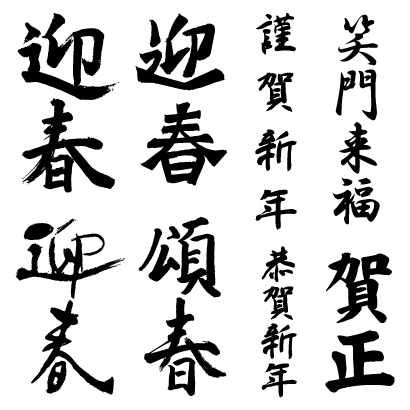 笑門来福
賀正
謹賀新年
恭賀新年
迎春
頌春
迎春
迎春